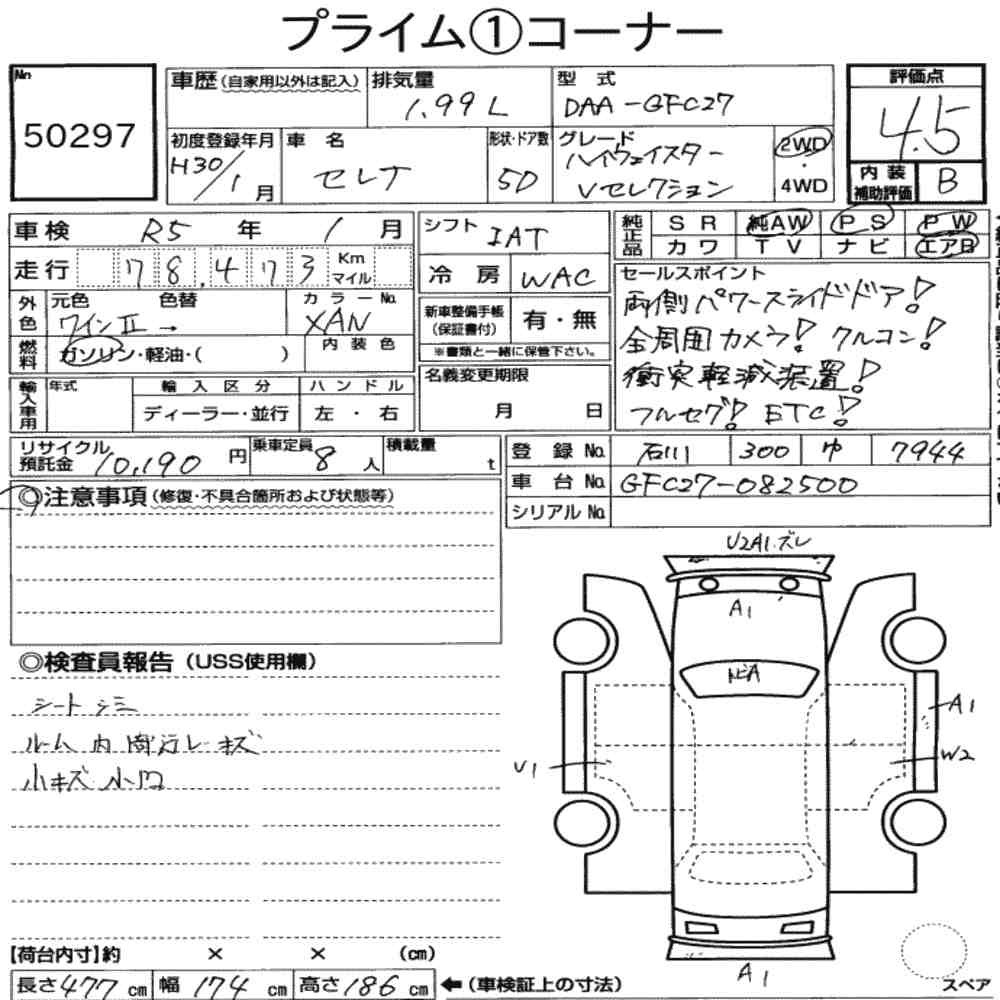 プライム①コーナー
No
50297
車歴(自家用以外は記入)
排気量
1.99 L
型式
DAA-GFC27
評価点
4.5
初度登録年月
H30/1月
車名
セレナ
形状・ドア数
5D
グレード
ハイウェイスター
Vセレクション
2WD
・
4WD
内装
補助評価
B
車検 R5 年 1 月
走行 78,473 Km
マイル
シフト IAT
冷房 WAC
純正品
SR 純AW PS PW
カワ TV ナビ エアB
外色
元色 色替
ワインⅡ→
カラーNo.
XAN
燃料
ガソリン・軽油・( )
内装色
新車整備手帳
(保証書付)
有・無
※書類と一緒に保管下さい。
セールスポイント
両側パワースライドドア!
全周囲カメラ! クルコン!
衝突軽減装置!
フルセグ! ETC!
輸入車用
年式
輸入区分
ディーラー・並行
ハンドル
左・右
名義変更期限
月 日
リサイクル
預託金 10,190 円
乗車定員 8 人
積載量
t
登録No. 石川 300 ゆ 7944
車台No. GFC27-082500
シリアルNo.
◎注意事項(修復・不具合箇所および状態等)
U2A1.ズレ
A1
トビA
◎検査員報告(USS使用欄)
シートシミ
ルーム内 キズ
小キズ 小凹
A1
U1
W2
【荷台内寸】約 × × (cm)
A1
スペア
長さ 477 cm 幅 174 cm 高さ 186 cm ←(車検証上の寸法)